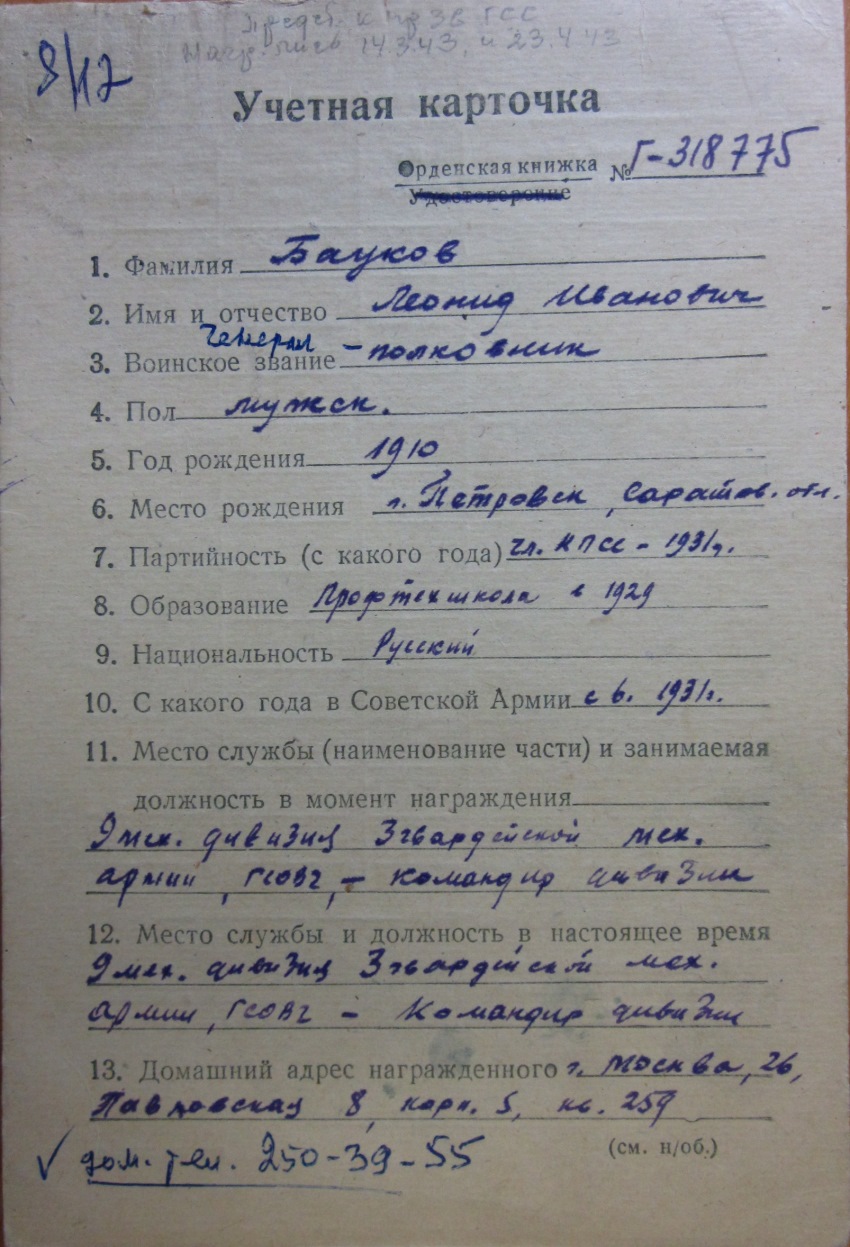 Предст. к пр. зв ГСС
Нагр. лист 14.3.43, и 23.4.43
9/17
Учетная карточка
Орденская книжка № Г-318775
Удостоверение
1. Фамилия Бауков
2. Имя и отчество Леонид Иванович
Генерал
3. Воинское звание – полковник
4. Пол мужск.
5. Год рождения 1910
6. Место рождения г. Петровск, Саратов. обл.
7. Партийность (с какого года) чл. КПСС – 1931 г.
8. Образование Профтехшкола в 1929
9. Национальность Русский
10. С какого года в Советской Армии с 1931 г.
11. Место службы (наименование части) и занимаемая
должность в момент награждения
9 мех. дивизия 3 гвардейской мех.
армии, ГСОВГ, – командир дивизии
12. Место службы и должность в настоящее время
9 мех. дивизия 3 гвардейской мех.
армии, ГСОВГ – Командир дивизии
13. Домашний адрес награжденного г. Москва, 26,
Павловская 8, корп. 5, кв. 259
(см. н/об.)
✓ дом. тел. 250-39-55